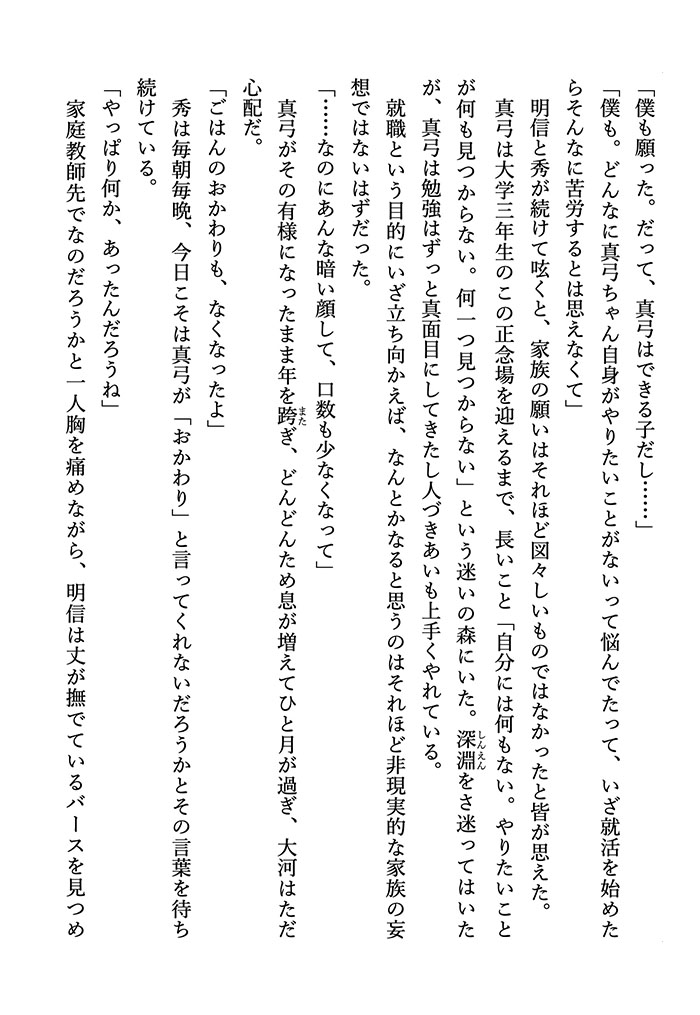 「僕も願った。だって、真弓はできる子だし……」
「僕も。どんなに真弓ちゃん自身がやりたいことがないって悩んでたって、いざ就活を始めた
らそんなに苦労するとは思えなくて」
明信と秀が続けて呟くと、家族の願いはそれほど図々しいものではなかったと皆が思えた。
真弓は大学三年生のこの正念場を迎えるまで、長いこと「自分には何もない。やりたいこと
が何も見つからない。何一つ見つからない」という迷いの森にいた。深淵をさ迷ってはいた
が、真弓は勉強はずっと真面目にしてきたし人づきあいも上手くやれている。
就職という目的にいざ立ち向かえば、なんとかなると思うのはそれほど非現実的な家族の妄
想ではないはずだった。
「……なのにあんな暗い顔して、口数も少なくなって」
真弓がその有様になったまま年を跨ぎ、どんどんため息が増えてひと月が過ぎ、大河はただ
心配だ。
「ごはんのおかわりも、なくなったよ」
秀は毎朝毎晩、今日こそは真弓が「おかわり」と言ってくれないだろうかとその言葉を待ち
続けている。
「やっぱり何か、あったんだろうね」
家庭教師先でなのだろうかと一人胸を痛めながら、明信は丈が撫でているバースを見つめ